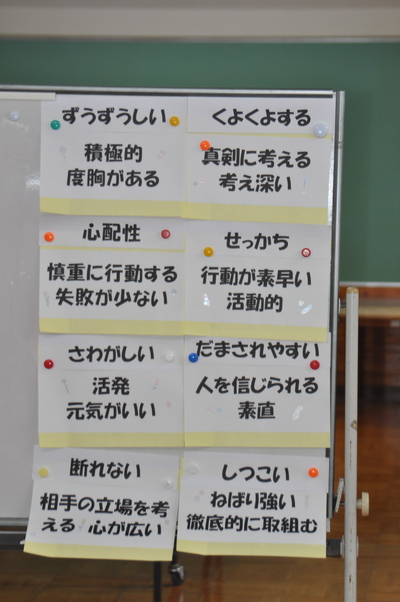 ずうずうしい
積極的
度胸がある
くよくよする
真剣に考える
考え深い
心配性
慎重に行動する
失敗が少ない
せっかち
行動が素早い
活動的
さわがしい
活発
元気がいい
だまされやすい
人を信じられる
素直
断れない
相手の立場を考
える 心が広い
しつこい
ねばり強い
徹底的に取組む